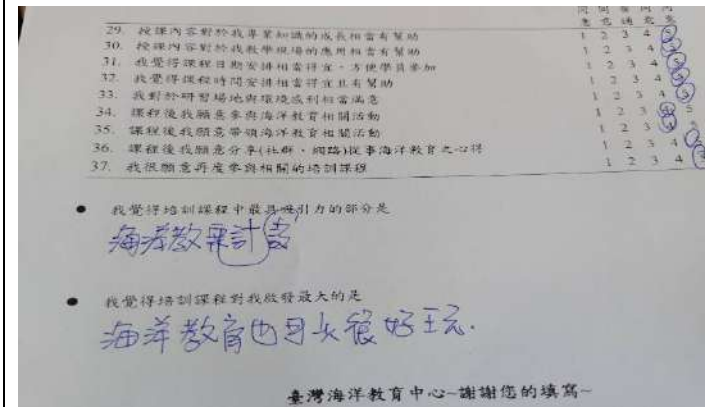 29. 授課內容對於我專業知識的成長相當有幫助 1 2 3 4 5
30. 授課內容對於我教學現場的應用相當有幫助 1 2 3 4 5
31. 我覺得課程日期安排相當得宜，方便學員參加 1 2 3 4 5
32. 我覺得課程時間安排相當得宜且有幫助 1 2 3 4 5
33. 我對於研習場地與環境感到相當滿意 1 2 3 4 5
34. 課程後我願意參與海洋教育相關活動 1 2 3 4 5
35. 課程後我願意帶領海洋教育相關活動 1 2 3 4 5
36. 課程後我願意分享(社群、網路)從事海洋教育之心得 1 2 3 4
37. 我很願意再度參與相關的培訓課程 1 2 3 4
● 我覺得培訓課程中最具吸引力的部分是
海洋教案計
● 我覺得培訓課程對我啟發最大的是
海洋教育也可以很好玩.
臺灣海洋教育中心~謝謝您的填寫~